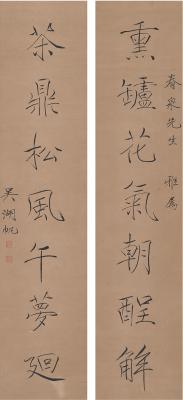 熏鑪花氣朝酲解
春泉先生 雅屬
茶鼎松風午夢廻
吳湖帆